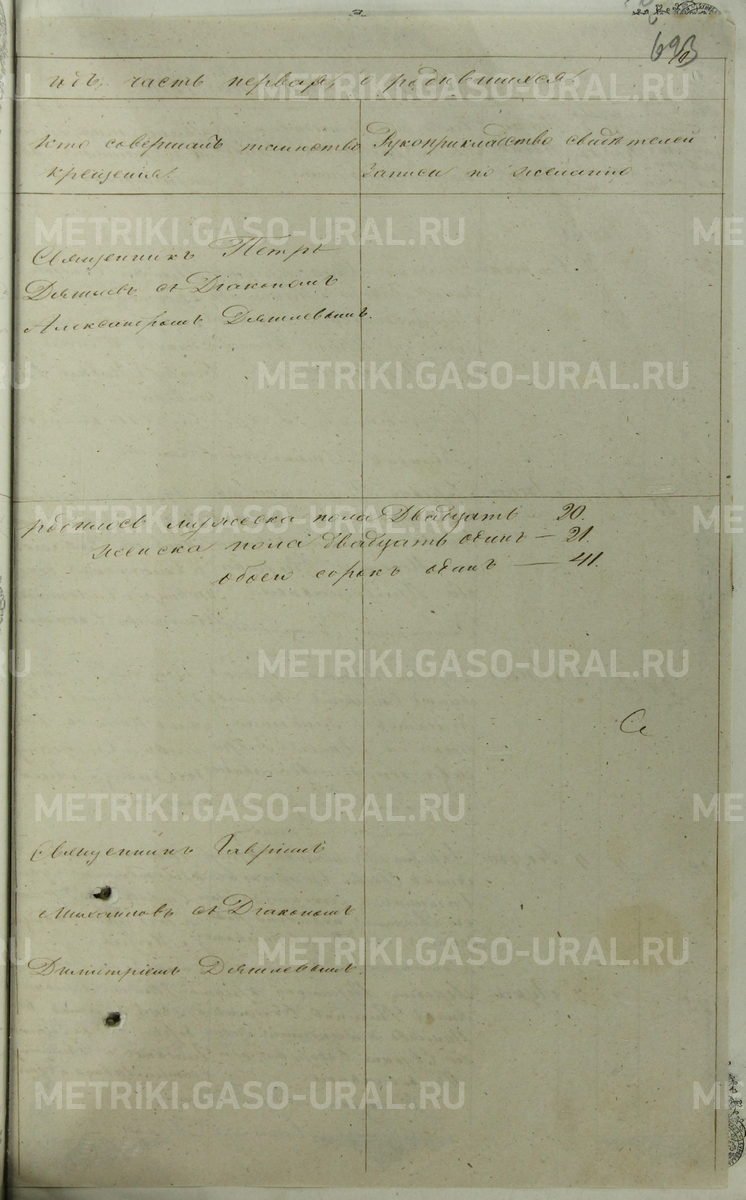 693
годъ, часть первая, о родившихся.
Кто совершалъ таинство
крещенія.
Рукоприкладство свидѣтелей
записи по желанію
METRIKI.GASO-URAL.RU
Священникъ Петръ
съ Діакономъ
Александромъ
METRIKI.GASO-URAL.RU
мужеска пола двадцать — 20.
женска пола двадцать одинъ — 21.
обоего сорокъ одинъ — 41.
METRIKI.GASO-URAL.RU
METRIKI.GASO-URAL.RU
Се
METRIKI.GASO-URAL.RU
Священникъ Гавріилъ
съ Діакономъ
METRIKI.GASO-URAL.RU
Димитріемъ
METRIKI.GASO-URAL.RU